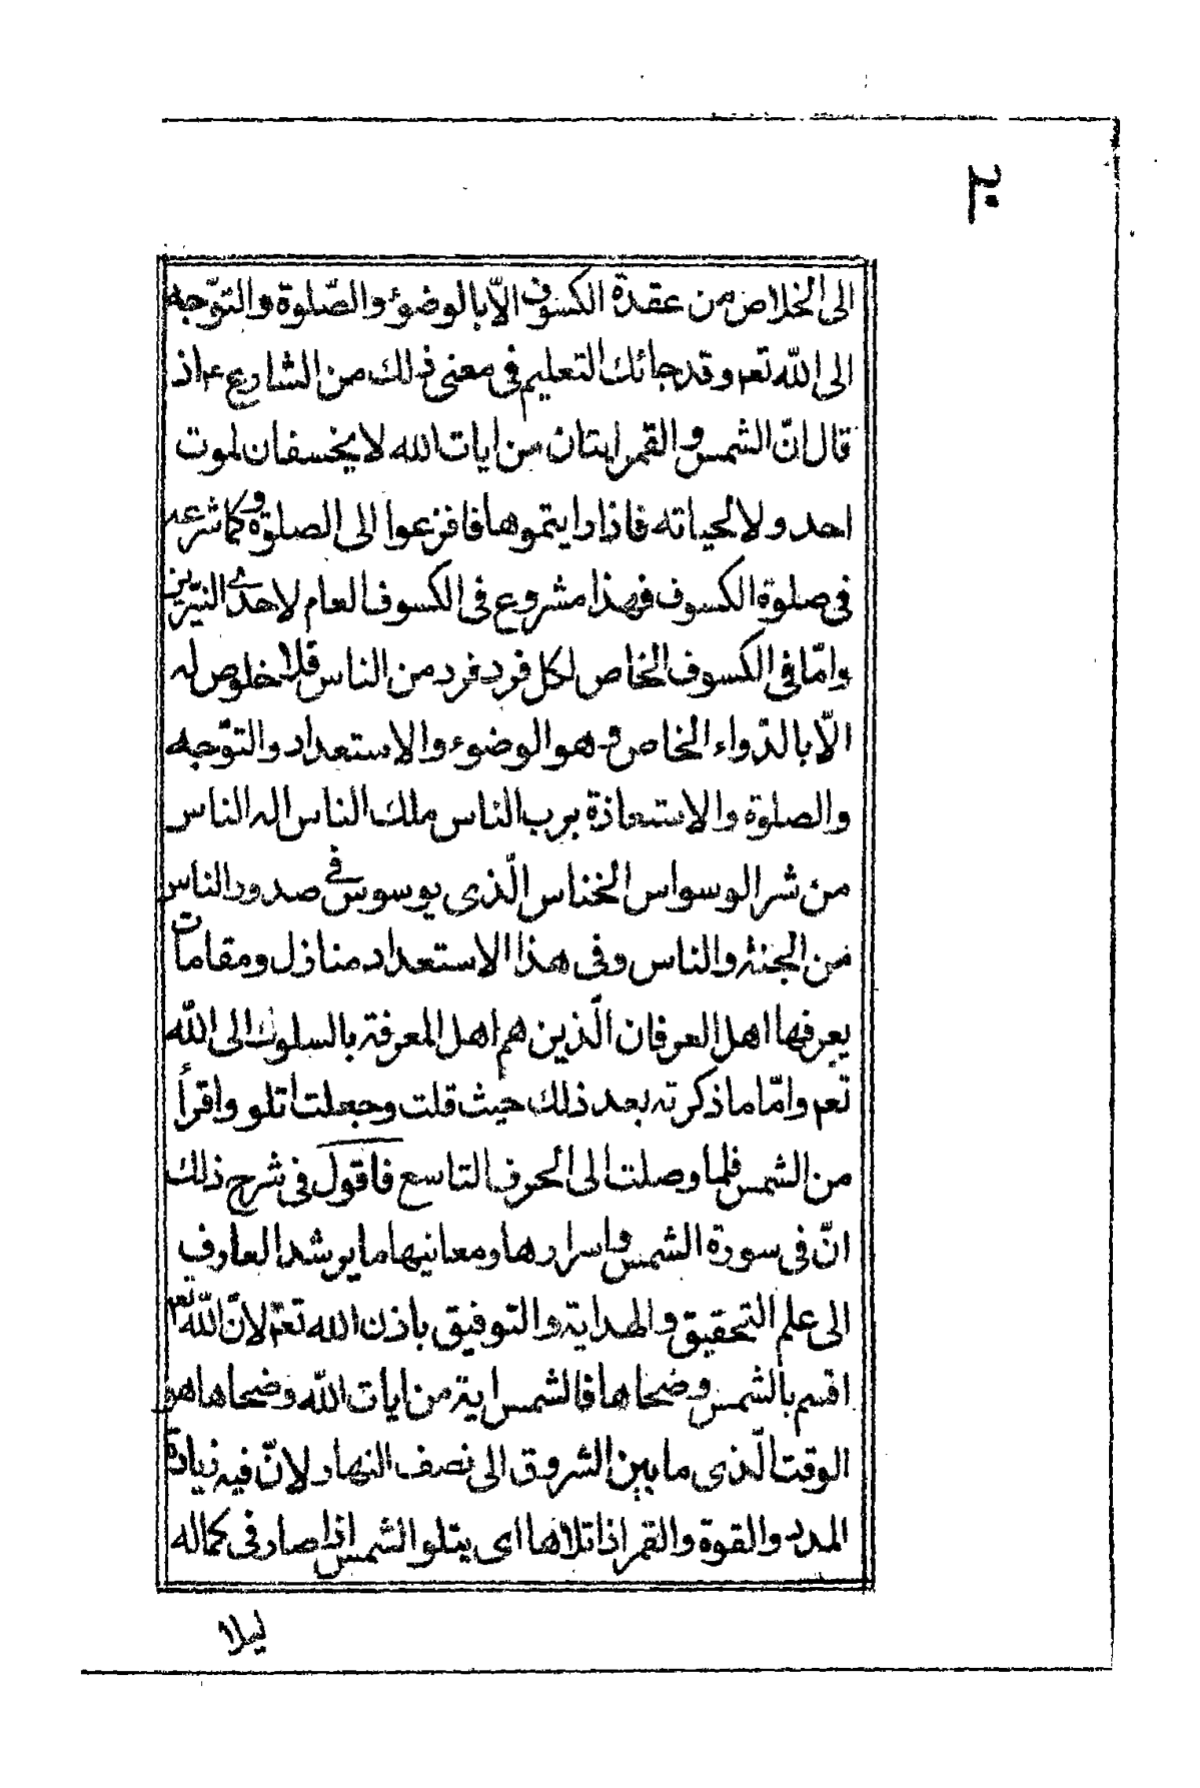 ٢٠
الى الخلاص من عقدة الكسوف الّا بالوضوء والصّلوة والتوّجه
الى الله تعم وقد جائك التعليم فى معنى ذلك من الشارع ع م اذ
قال انّ الشمس والقمر ايتان من ايات الله لا يخسفان لموت
احد ولا لحياته فاذا رايتموها فافزعوا الى الصلوة وكما شرعه
فى صلوة الكسوف فهذا مشروع فى الكسوف العام لاحدى النيّرين
وامّا فى الكسوف الخاص لكل فرد فرد من الناس فلا خلوص له
الّا بالدّواء الخاص وهو الوضوء والاستعداد والتوّجه
والصلوة والاستعاذة برب الناس ملك الناس اله الناس
من شر الوسواس الخناس الّذى يوسوس فى صدور الناس
من الجنة والناس وفى هذا الاستعداد منازل ومقامات
يعرفها اهل العرفان الّذين هم اهل المعرفة بالسلوك الى الله
تعم وامّا ما ذكرته بعد ذلك حيث قلت وجعلت اتلو واقرأ
من الشمس فلما وصلت الى الحرف التاسع فاقول فى شرح ذلك
انّ فى سورة الشمس واسرارها ومعانيها ما يرشد العارف
الى علم التحقيق والهداية والتوفيق باذن الله تعم لانّ الله تعم
اقسم بالشمس وضحاها فالشمس اية من ايات الله وضحاها هو
الوقت الّذى ما بين الشروق الى نصف النهار ولانّ فيه زيادة
المدد والقوة والقمر اذا تلاها اى يتلو الشمس اذا صار فى كماله
ليلا